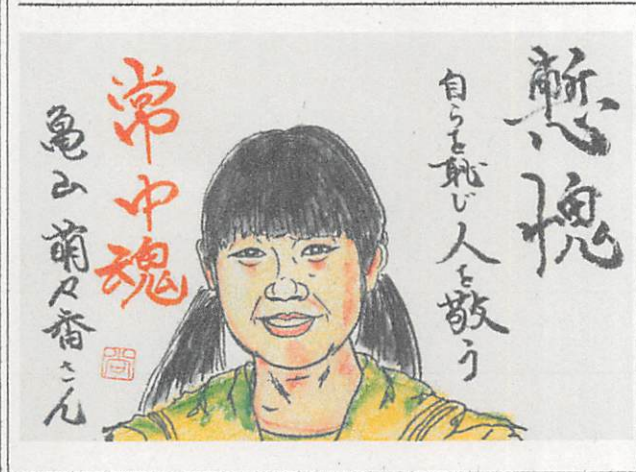 慙愧
自らを恥じ人を敬う
常中魂
亀山萌々香さん
尚